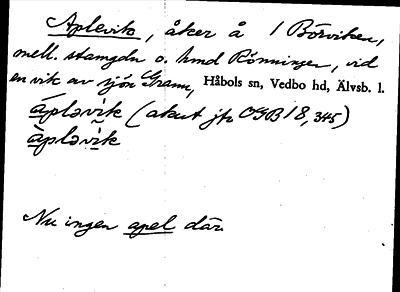 Aplevik, åker å 1 Börviken,
mell. stamgdn o. hmd Rönningen, vid
en vik av sjön Grann, Håbols sn, Vedbo hd, Älvsb. l.
àpləvik (akut jfr OGB 18, 345)
àpləvìk
Nu ingen apel där